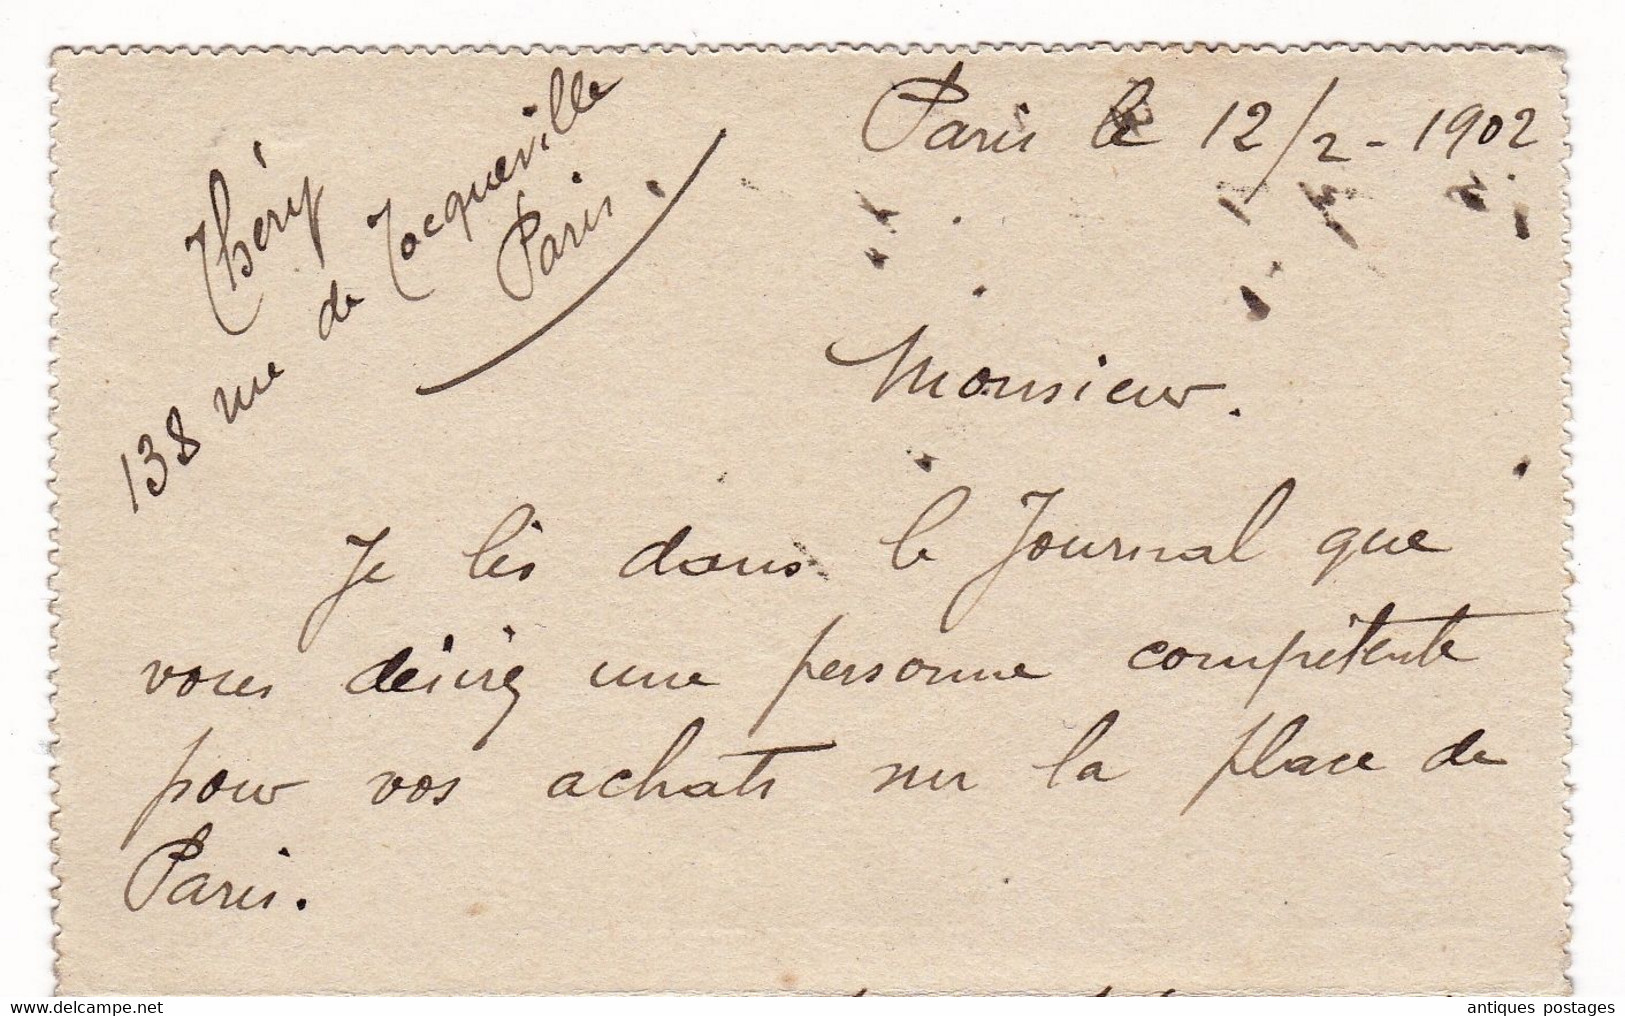 Paris le 12/2 - 1902
Théry
138 rue de Tocqueville
Paris.
Monsieur.
Je lis dans le Journal que
vous désirez une personne compétente
pour vos achats sur la place de
Paris.
delcampe.net
antiques postages